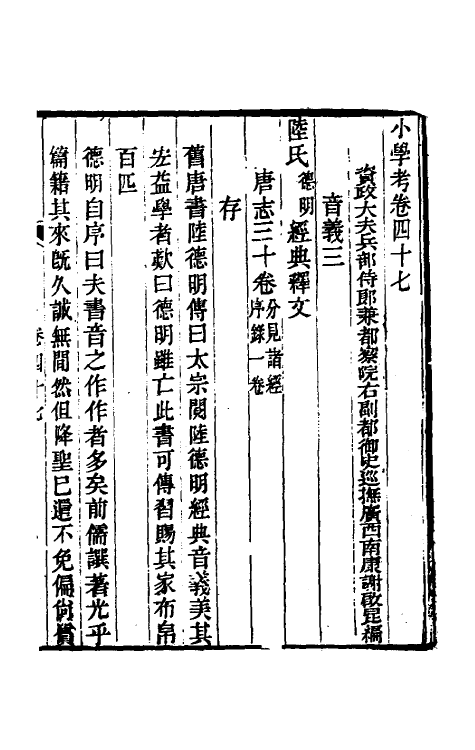 小學考卷四十七
資政大夫兵部侍郎兼都察院右副都御史巡撫廣西南康謝啟昆編
音義三
陸氏德明經典釋文
唐志三十卷分見諸經序錄一卷
存
舊唐書陸德明傳曰太宗閱陸德明經典音義美其
宏益學者歎曰德明雖亡此書可傳習賜其家布帛
百匹
德明自序曰夫書音之作作者多矣前儒譔著光乎
篇籍其來旣久誠無閒然但降聖已還不免偏尙質
卷四十七